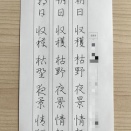 朝日 収穫 枯野 夜景 情
朝日 収穫 枯野 夜景 情
朝日 収穫 枯野 夜景 情